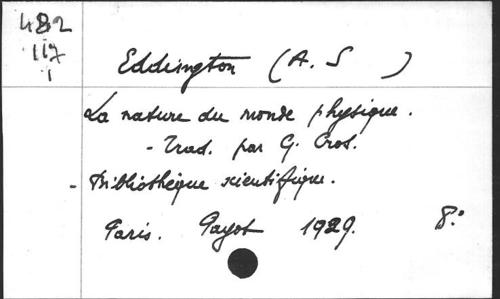 482
117
1
Eddington (A. S )
La nature du monde physique.
- Trad. par G. Cros.
- Bibliothèque scientifique.
Paris. Payot 1929. 8°